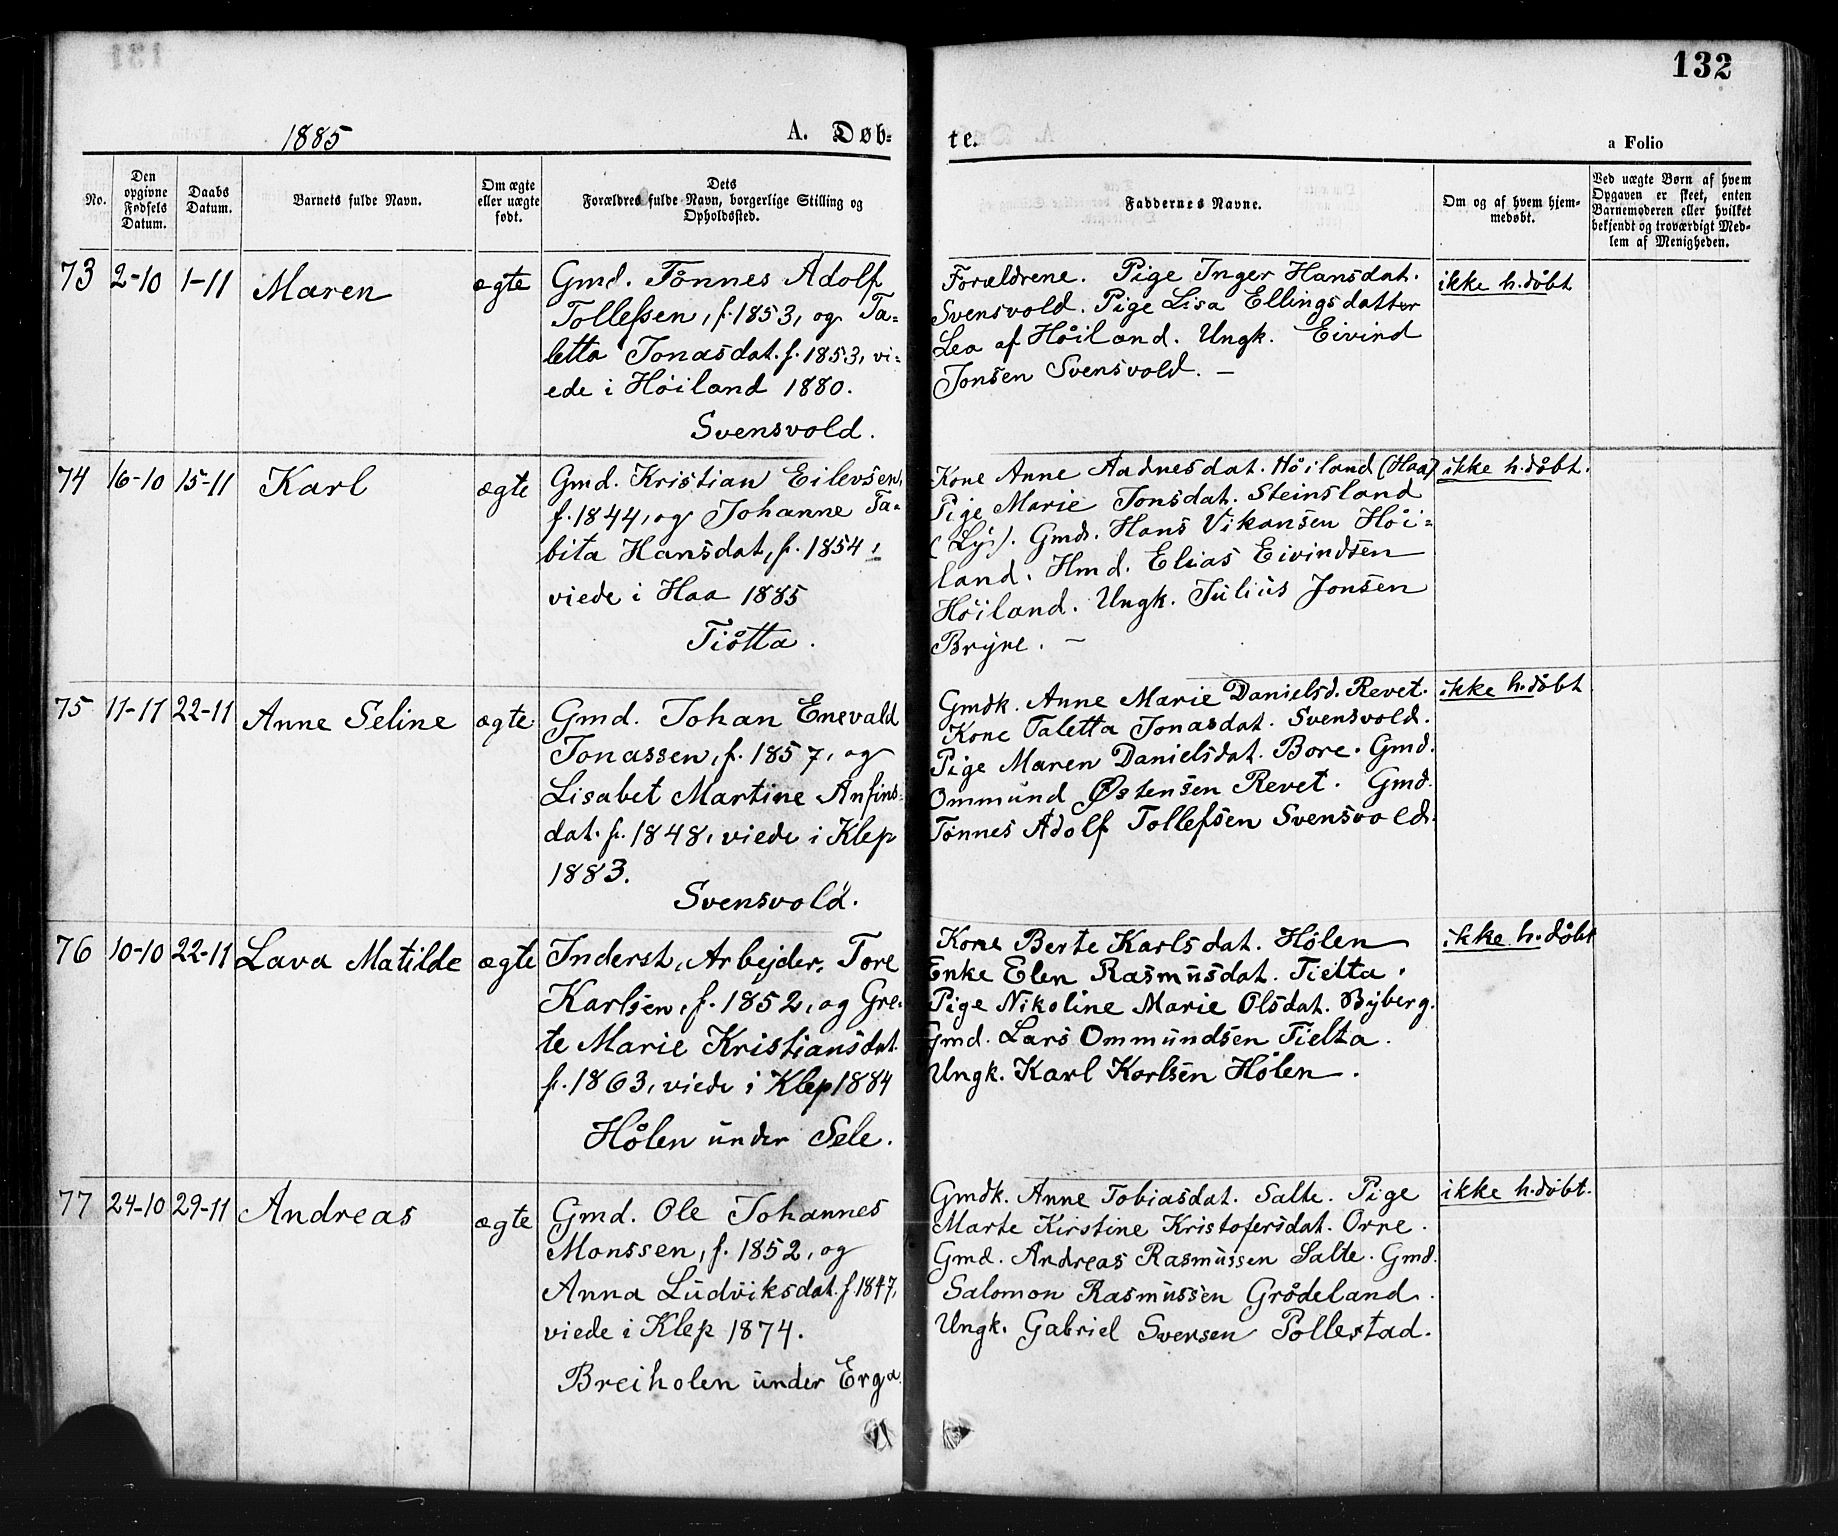 132
1885
A. Døb-
te.
a Folio
No.
Den
opgivne
Fødsels
Datum.
Daabs
Datum.
Barnets fulde Navn.
Om ægte
eller uægte
født.
Dets
Forældres fulde Navn, borgerlige Stilling og
Opholdssted.
Faddernes Navne.
Om og af hvem hjem-
medøbt.
Ved uægte Børn af hvem
Opgaven er skeet, enten
Barnemoderen eller hvilket
bekjendt og troværdigt Med-
lem af Menigheden.
73
2-10
1-11
Maren
ægte
Gmd. Tønnes Adolf
Tollefsen, f. 1853, og Ta-
letta Jonasdat. f. 1853, vi-
ede i Høiland 1880.
Svensvold.
Forældrene. Pige Inger Hansdat.
Svensvold. Pige Lisa Ellingsdatter
Lea af Høiland. Ungk. Eivind
Jonsen Svensvold. —
ikke h.døbt
74
16-10
15-11
Karl
ægte
Gmd. Kristian Eilevsen,
f. 1844, og Johanne Ta-
bita Hansdat, f. 1854,
viede i Haa 1885
Tiøtta.
Kone Anne Aadnesdat. Høiland (Haa)
Pige Marie Jonsdat. Steinsland
(Ly). Gmd. Hans Vikansen Høi-
land. Hmd. Elias Eivindsen
Høiland. Ungk. Julius Jonsen
Bryne. —
ikke h.døbt.
75
11-11
22-11
Anne Seline
ægte
Gmd. Johan Enevald
Jonassen, f. 1857, og
Lisabet Martine Anfins-
dat. f. 1848, viede i Klep
1883.
Svensvold.
Gmdk. Anne Marie Danielsd. Revet.
Kone Taletta Jonasdat. Svensvold.
Pige Maren Danielsdat. Bore. Gmd.
Ommund Østensen Revet. Gmd.
Tønnes Adolf Tollefsen Svensvold.
ikke h.døbt
76
10-10
22-11
Lava Matilde
ægte
Inderst, Arbejder, Tore
Karlsen, f. 1852, og Gre-
te Marie Kristiansdat.
f. 1863, viede i Klep 1884
Hølen under Sele.
Kone Berte Karlsdat. Hølen
Enke Elen Rasmusdat. Tielta.
Pige Nikoline Marie Olsdat. Byberg.
Gmd. Lars Ommundsen Tielta.
Ungk. Karl Karlsen Hølen.
ikke h.døbt
77
24-10
29-11
Andreas
ægte
Gmd. Ole Johannes
Monssen, f. 1852, og
Anna Ludviksdat. f. 1847,
viede i Klep 1874.
Breiholen under Erga.
Gmdk. Anne Tobiasdat. Salte. Pige
Marte Kirstine Kristofersdat. Orre.
Gmd. Andreas Rasmussen Salte. Gmd.
Salomon Rasmussen Grødeland.
Ungk. Gabriel Svensen Pollestad.
ikke h.døbt.